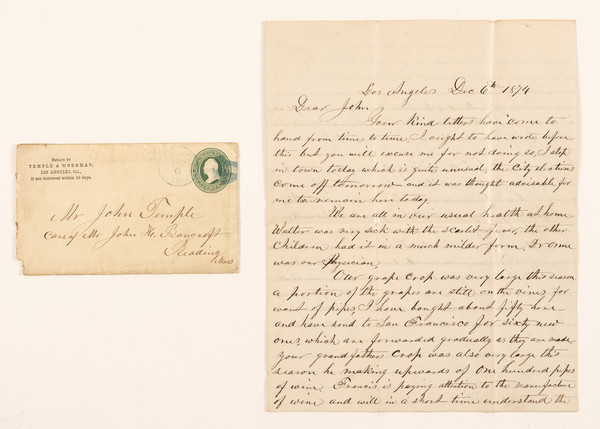 Return to
TEMPLE & WORKMAN,
LOS ANGELES, Cal.,
If not delivered within 10 days.
6
Mr John Temple
Care of Mr John H. Bancroft
Reading
Mass
Los Angeles Dec 6th 1874
Dear John,
Your Kind letters have come to
hand from time to time, I ought to have wrote before
this but you will excuse me for not doing so, I stop
in town today which is quite unusual, the City elections
come off tomorrow and it was thought adviseable for
me to remain here today.
We are all in our usual health at home
Walter was very sick with the Scarlet fever, the other
Children had it in a much milder form, Dr Orme
was our Physician,
Our grape Crop was very large this season
a portion of the grapes are still on the vines for
want of pipes, I have bought about fifty here
and have send to San Francisco for sixty new
ones, which are forwarded gradually as they are made
your grandfathers Crop was also very large this
season he making upwards of One hundred pipes
of wine, Francis is paying attention to the manufacture
of wine and will in a short time understand the